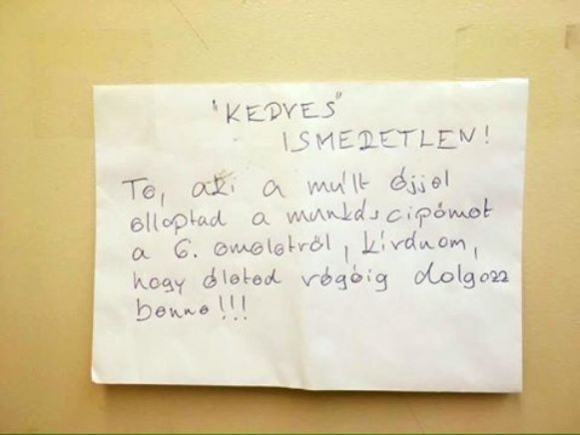 "KEDVES"
ISMERETLEN!
Te, aki a múlt éjjel
elloptad a munkáscipőmet
a 6. emeletről, kívánom,
hogy életed végéig dolgozz
benne!!!